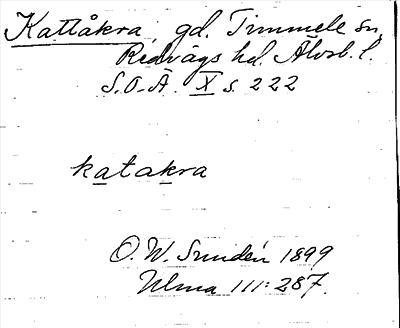 Kattåkra, gd. Timmele sn,
Redvägs hd. Älvsb. l.
S.O.Ä. X s. 222
katakra
O. W. Sundén 1899
Ulma 111:287.